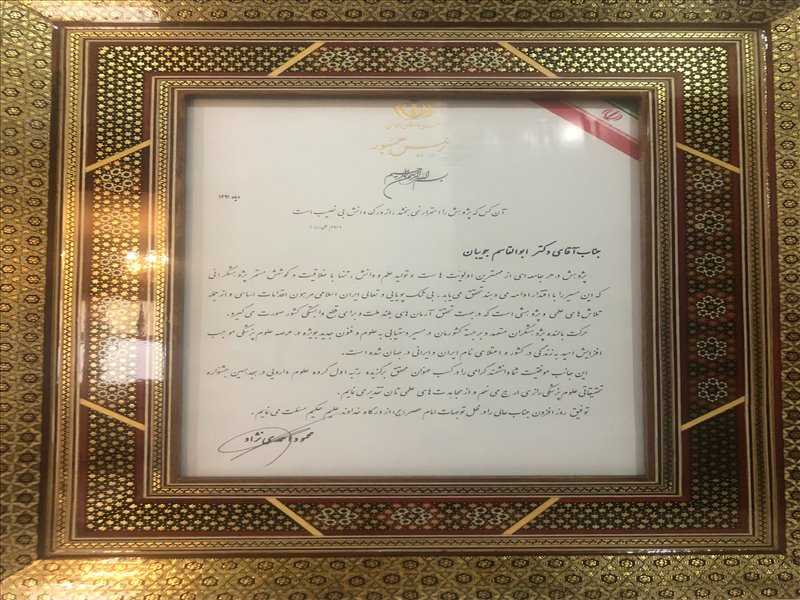 جمهوری اسلامی ایران
رئیس جمهور
بسم الله الرحمن الرحیم
دیماه ۱۳۹۱
آن کس که پژوهش را استمرار نمی بخشد، از درک دانش بی نصیب است
(امام علی (ع))
جناب آقای دکتر ابوالقاسم جویبان
پژوهش در هر جامعه ای از مهمترین اولویت هاست و تولید علم و دانش، تنها با خلاقیت و کوشش مستمر پژوهشگرانی
که این مسیر را با اقتدار ادامه می دهند تحقق می یابد. بی شک پویایی و تعالی ایران اسلامی مرهون اقدامات اساسی و از جمله
تلاش های علمی و پژوهشی است که در جهت تحقق آرمان های بلند ملت و برای قطع وابستگی کشور صورت می گیرد.
حرکت بالنده پژوهشگران متعهد و برجسته کشورمان در مسیر دستیابی به علوم و فنون جدید بویژه در عرصه علوم پزشکی موجب
افزایش امید به زندگی در کشور و اعتلای نام ایران و ایرانی در جهان شده است.
این جانب موفقیت شما دانشمند گرامی را در کسب عنوان محقق برگزیده رتبه اول گروه علوم دارویی در هجدهمین جشنواره
تحقیقاتی علوم پزشکی رازی ارج می نهم و از مجاهدت های علمی تان تقدیر می نمایم.
توفیق روزافزون جناب عالی را در ظل توجهات امام عصر (عج) از درگاه خداوند علیم حکیم مسئلت می نمایم.
محمود احمدی نژاد